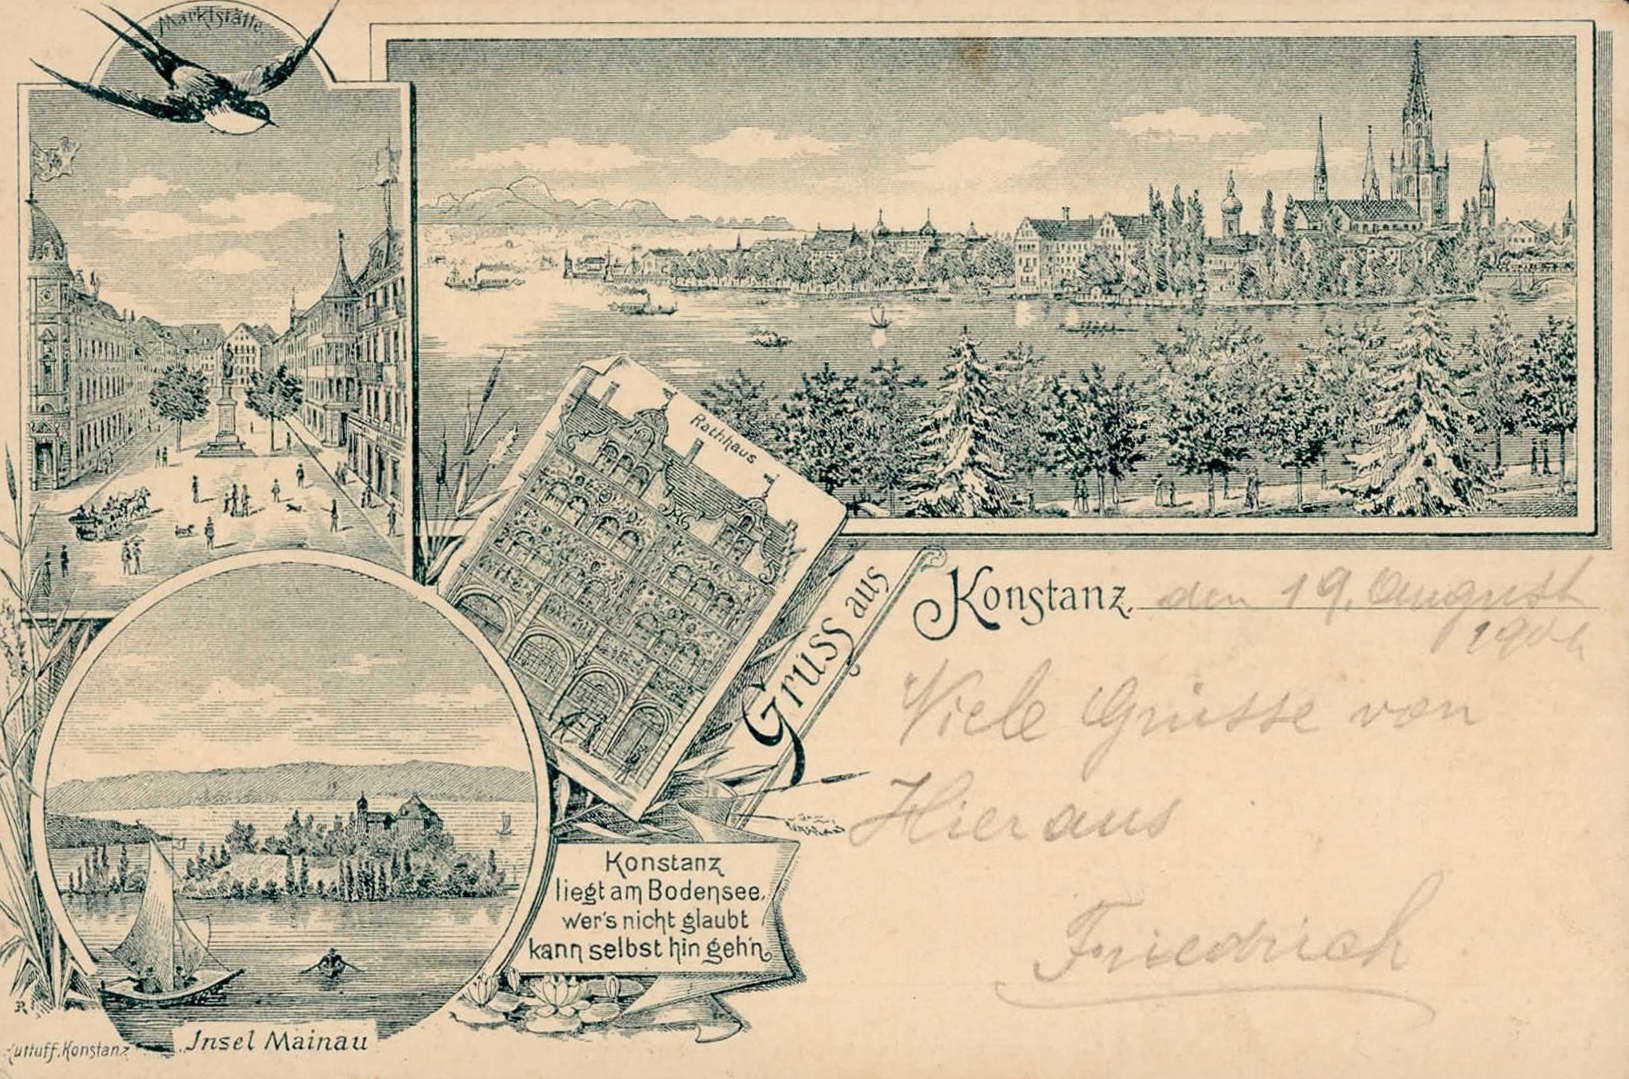 Marktstätte.
Rathhaus
Gruss aus
Konstanz, den 19. August
Viele Grüsse von
Hier aus
Friedrich
Konstanz
liegt am Bodensee,
wer's nicht glaubt
kann selbst hin geh'n.
Insel Mainau
Konstanz